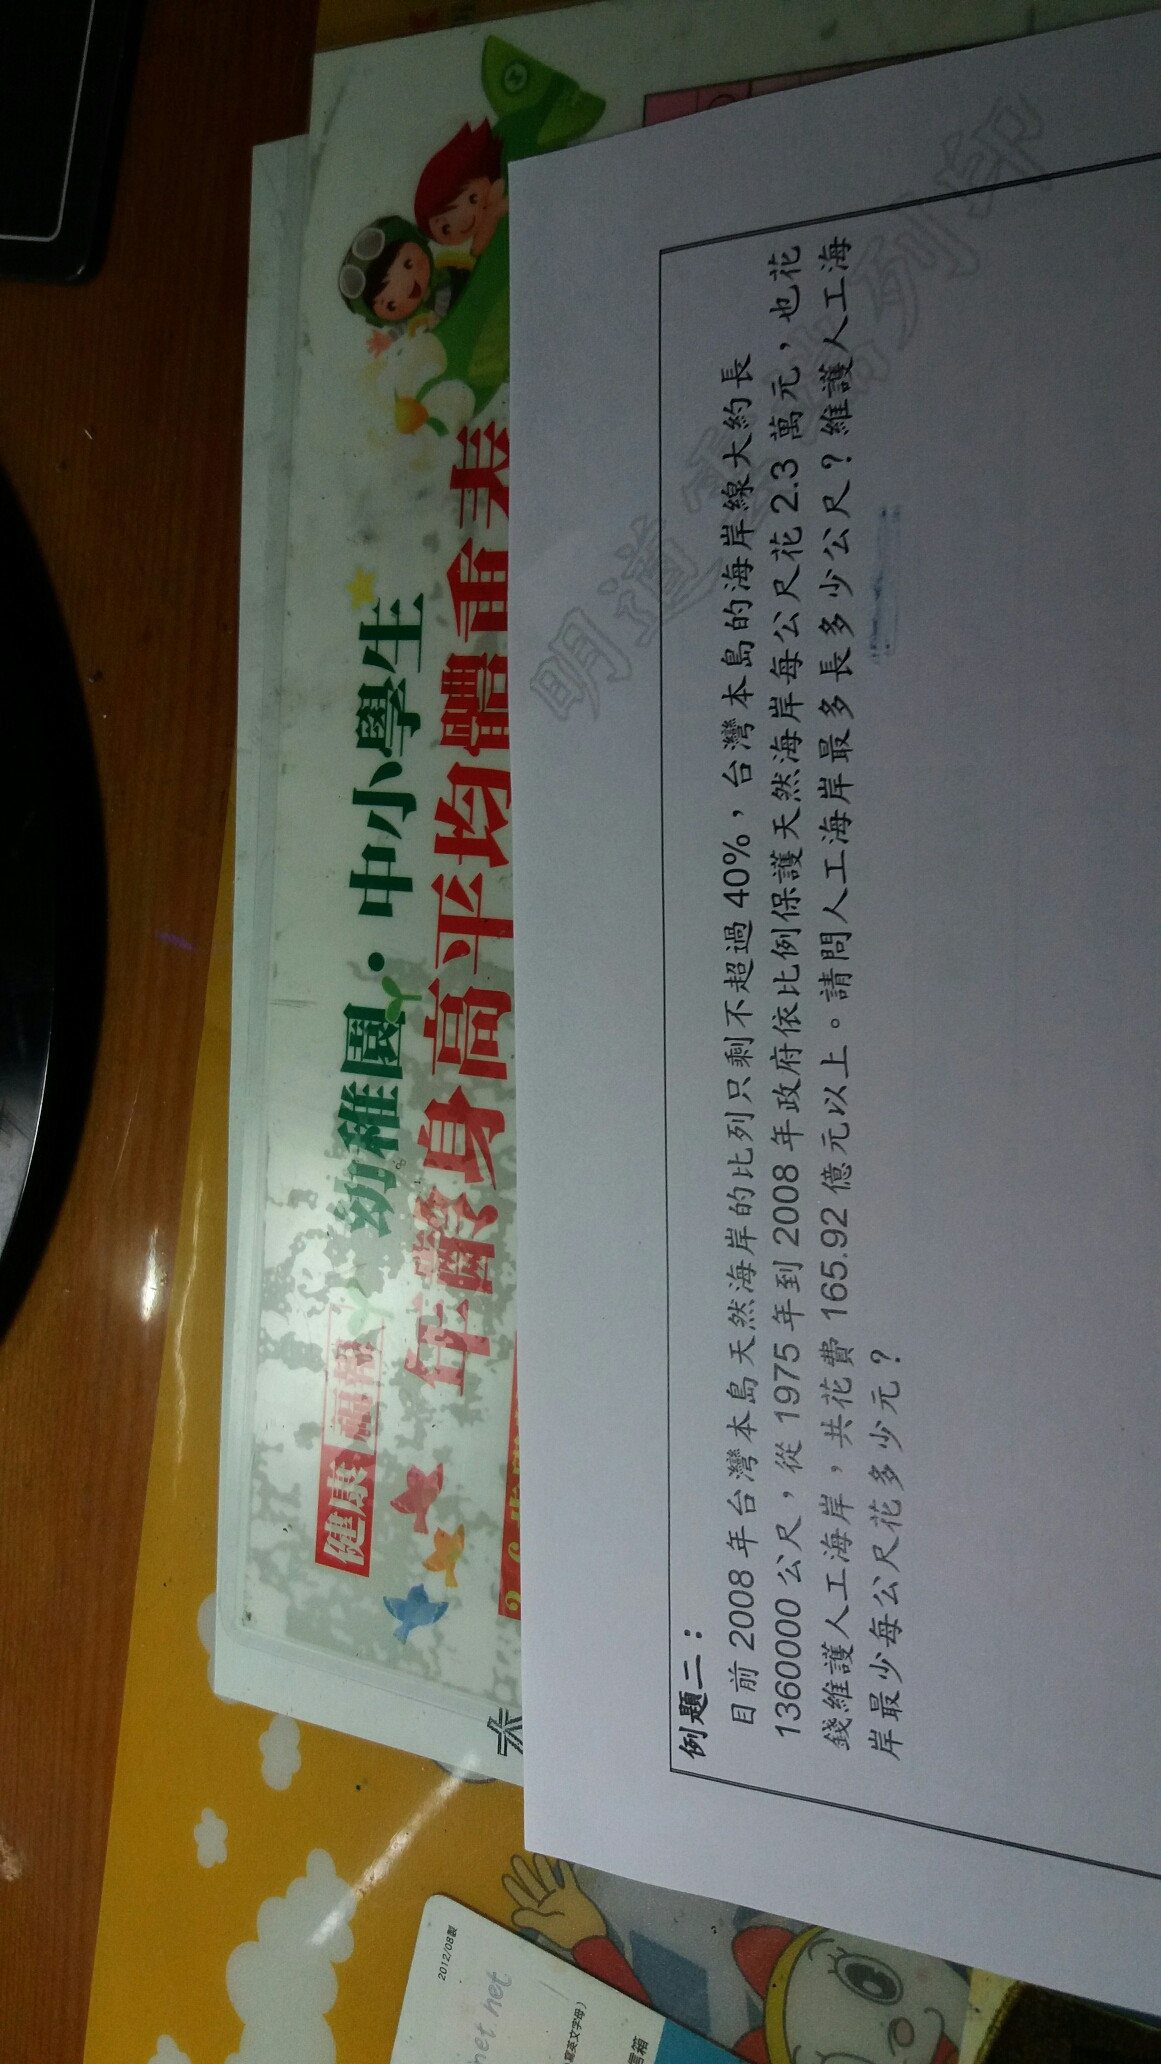 健康 視報
幼稚園・中小學生
年齡身高平均體重表
例題二：
目前 2008 年台灣本島天然海岸的比列只剩不超過 40%，台灣本島的海岸線大約長
1360000 公尺，從 1975 年到 2008 年政府依比例保護天然海岸每公尺花 2.3 萬元，也花
錢維護人工海岸，共花費 165.92 億元以上。請問人工海岸最多長多少公尺？維護人工海
岸最少每公尺花多少元？
明道
列印
2012/08製
net net